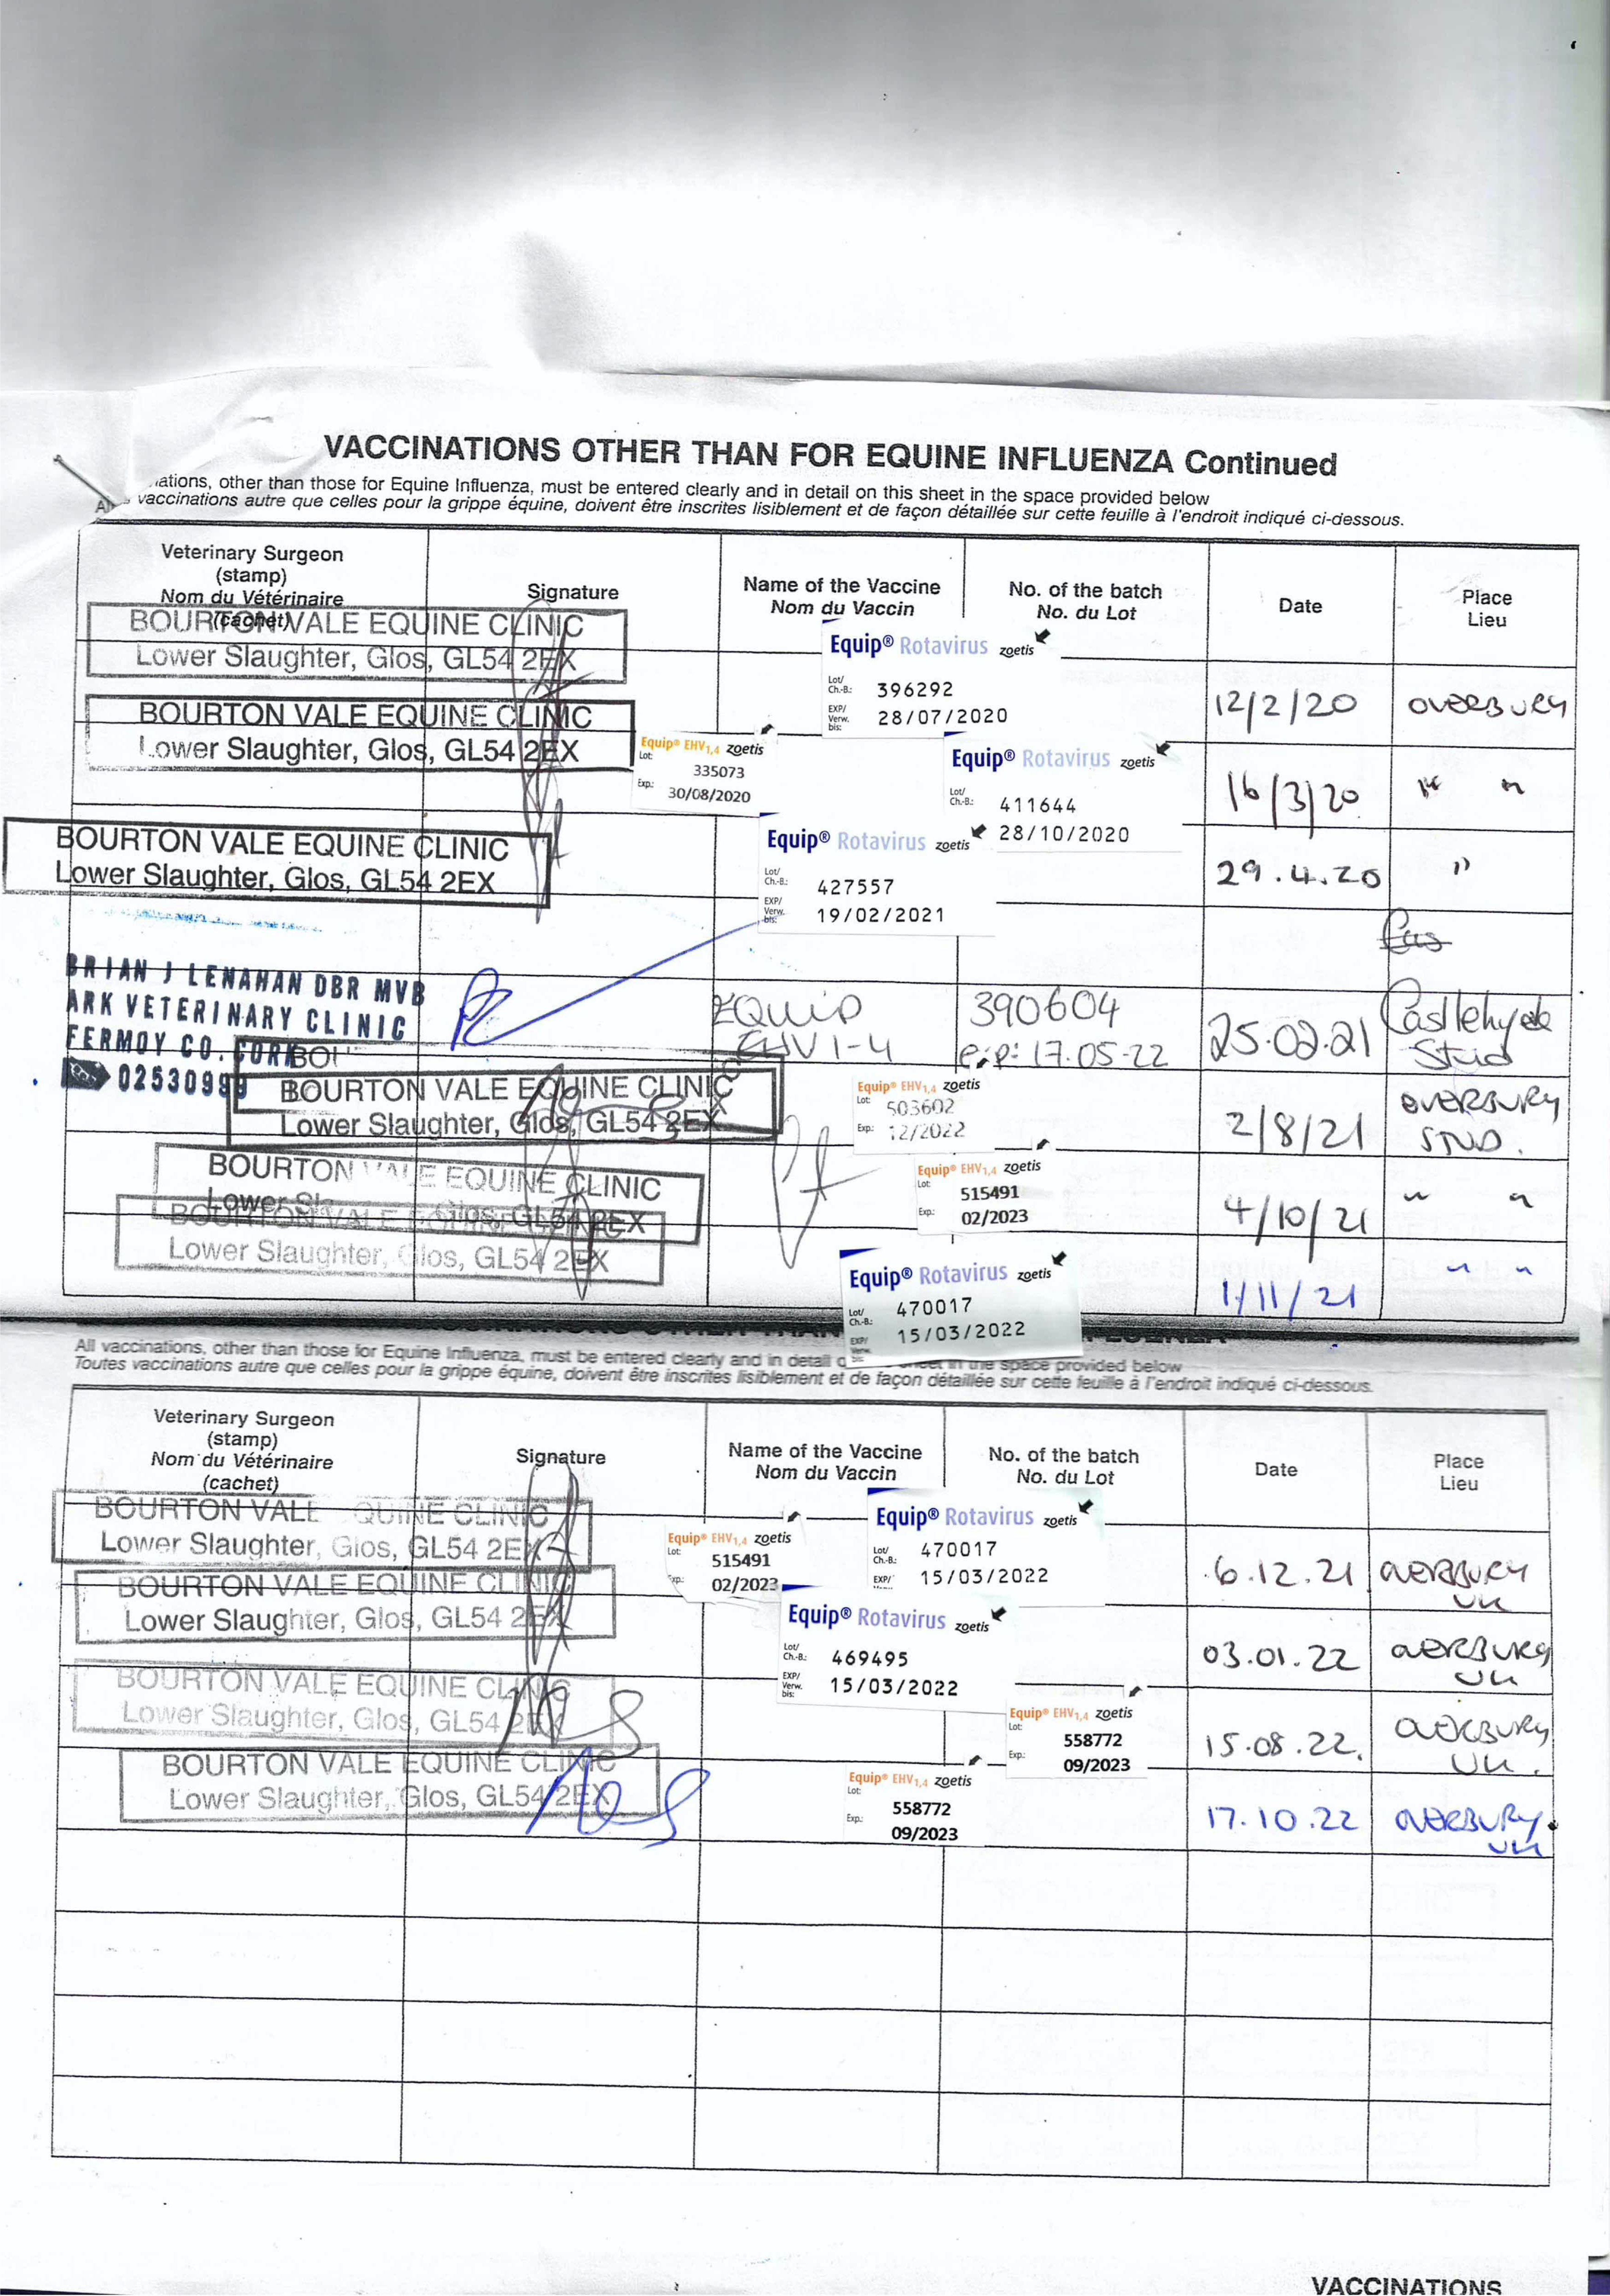 VACCINATIONS OTHER THAN FOR EQUINE INFLUENZA Continued
ations, other than those for Equine Influenza, must be entered clearly and in detail on this sheet in the space provided below
vaccinations autre que celles pour la grippe équine, doivent être inscrites lisiblement et de façon détaillée sur cette feuille à l'endroit indiqué ci-dessous.
Veterinary Surgeon
(stamp)
Nom du Vétérinaire
(cachet)
Signature
Name of the Vaccine
Nom du Vaccin
No. of the batch
No. du Lot
Date
Place
Lieu
BOURTON VALE EQUINE CLINIC
Lower Slaughter, Glos, GL54 2EX
Equip® Rotavirus zoetis
Lot/
Ch.-B.: 396292
EXP/
Verw.
bis: 28/07/2020
12/2/20
OVERBURY
BOURTON VALE EQUINE CLINIC
Lower Slaughter, Glos, GL54 2EX
Equip® EHV1,4 zoetis
Lot:
335073
Exp.: 30/08/2020
Equip® Rotavirus zoetis
Lot/
Ch.-B.: 411644
28/10/2020
16/3/20
" "
BOURTON VALE EQUINE CLINIC
Lower Slaughter, Glos, GL54 2EX
Equip® Rotavirus zoetis
Lot/
Ch.-B.: 427557
EXP/
Verw.
bis: 19/02/2021
29.4.20
"
BRIAN J LENAHAN DBR MVB
ARK VETERINARY CLINIC
FERMOY CO. CORK
EQUIP
EHV 1-4
390604
17.05.22
Castlehyde
Stud
BOURTON VALE EQUINE CLINIC
Lower Slaughter, Glos, GL54 2EX
Equip® EHV1,4 zoetis
Lot:
503602
Exp.: 12/2022
2/8/21
OVERBURY
STUD.
BOURTON VALE EQUINE CLINIC
Lower Slaughter, Glos, GL54 2EX
Equip® EHV1,4 zoetis
Lot:
515491
Exp.: 02/2023
4/10/21
" "
BOURTON VALE EQUINE CLINIC
Lower Slaughter, Glos, GL54 2EX
Equip® Rotavirus zoetis
Lot/
Ch.-B.: 470017
EXP/
Verw.
15/03/2022
1/11/21
" "
All vaccinations, other than those for Equine Influenza, must be entered clearly and in detail in the space provided below
Toutes vaccinations autre que celles pour la grippe équine, doivent être inscrites lisiblement et de façon détaillée sur cette feuille à l'endroit indiqué ci-dessous.
Veterinary Surgeon
(stamp)
Nom du Vétérinaire
(cachet)
Signature
Name of the Vaccine
Nom du Vaccin
No. of the batch
No. du Lot
Date
Place
Lieu
BOURTON VALE EQUINE CLINIC
Lower Slaughter, Glos, GL54 2EX
Equip® EHV1,4 zoetis
Lot:
515491
Exp.: 02/2023
Equip® Rotavirus zoetis
Lot/
Ch.-B.: 470017
EXP/
15/03/2022
6.12.21
OVERBURY
UK
BOURTON VALE EQUINE CLINIC
Lower Slaughter, Glos, GL54 2EX
Equip® Rotavirus zoetis
Lot/
Ch.-B.: 469495
EXP/
Verw.
bis: 15/03/2022
03.01.22
OVERBURY
UK
BOURTON VALE EQUINE CLINIC
Lower Slaughter, Glos, GL54 2EX
Equip® EHV1,4 zoetis
Lot:
558772
Exp.: 09/2023
15.08.22.
OVERBURY
UK.
BOURTON VALE EQUINE CLINIC
Lower Slaughter, Glos, GL54 2EX
Equip® EHV1,4 zoetis
Lot:
558772
Exp.: 09/2023
17.10.22
OVERBURY.
UK
VACCINATIONS